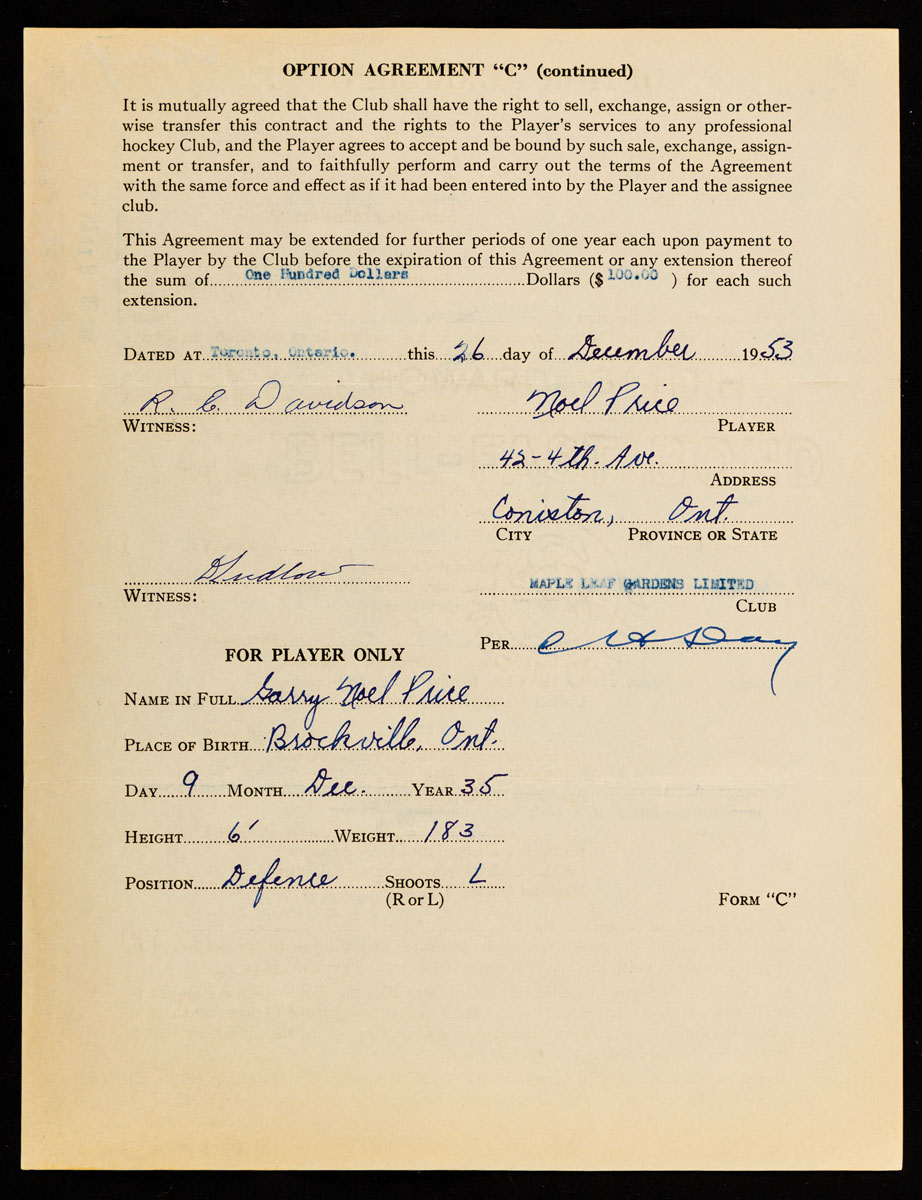 OPTION AGREEMENT “C” (continued)
It is mutually agreed that the Club shall have the right to sell, exchange, assign or other-
wise transfer this contract and the rights to the Player’s services to any professional
hockey Club, and the Player agrees to accept and be bound by such sale, exchange, assign-
ment or transfer, and to faithfully perform and carry out the terms of the Agreement
with the same force and effect as if it had been entered into by the Player and the assignee
club.
This Agreement may be extended for further periods of one year each upon payment to
the Player by the Club before the expiration of this Agreement or any extension thereof
the sum of One Hundred Dollars Dollars ($ 100.00 ) for each such
extension.
DATED AT Toronto, Ontario. this 26 day of December 1953
R. C. Davidson Noel Price
WITNESS: PLAYER
42-4th. Ave.
ADDRESS
Coniston, Ont.
CITY PROVINCE OR STATE
MAPLE LEAF GARDENS LIMITED
WITNESS: CLUB
PER C H Day
FOR PLAYER ONLY
NAME IN FULL Garry Noel Price
PLACE OF BIRTH Brockville, Ont.
DAY 9 MONTH Dec. YEAR 35
HEIGHT 6' WEIGHT 183
POSITION Defence SHOOTS L
(R or L) FORM “C”